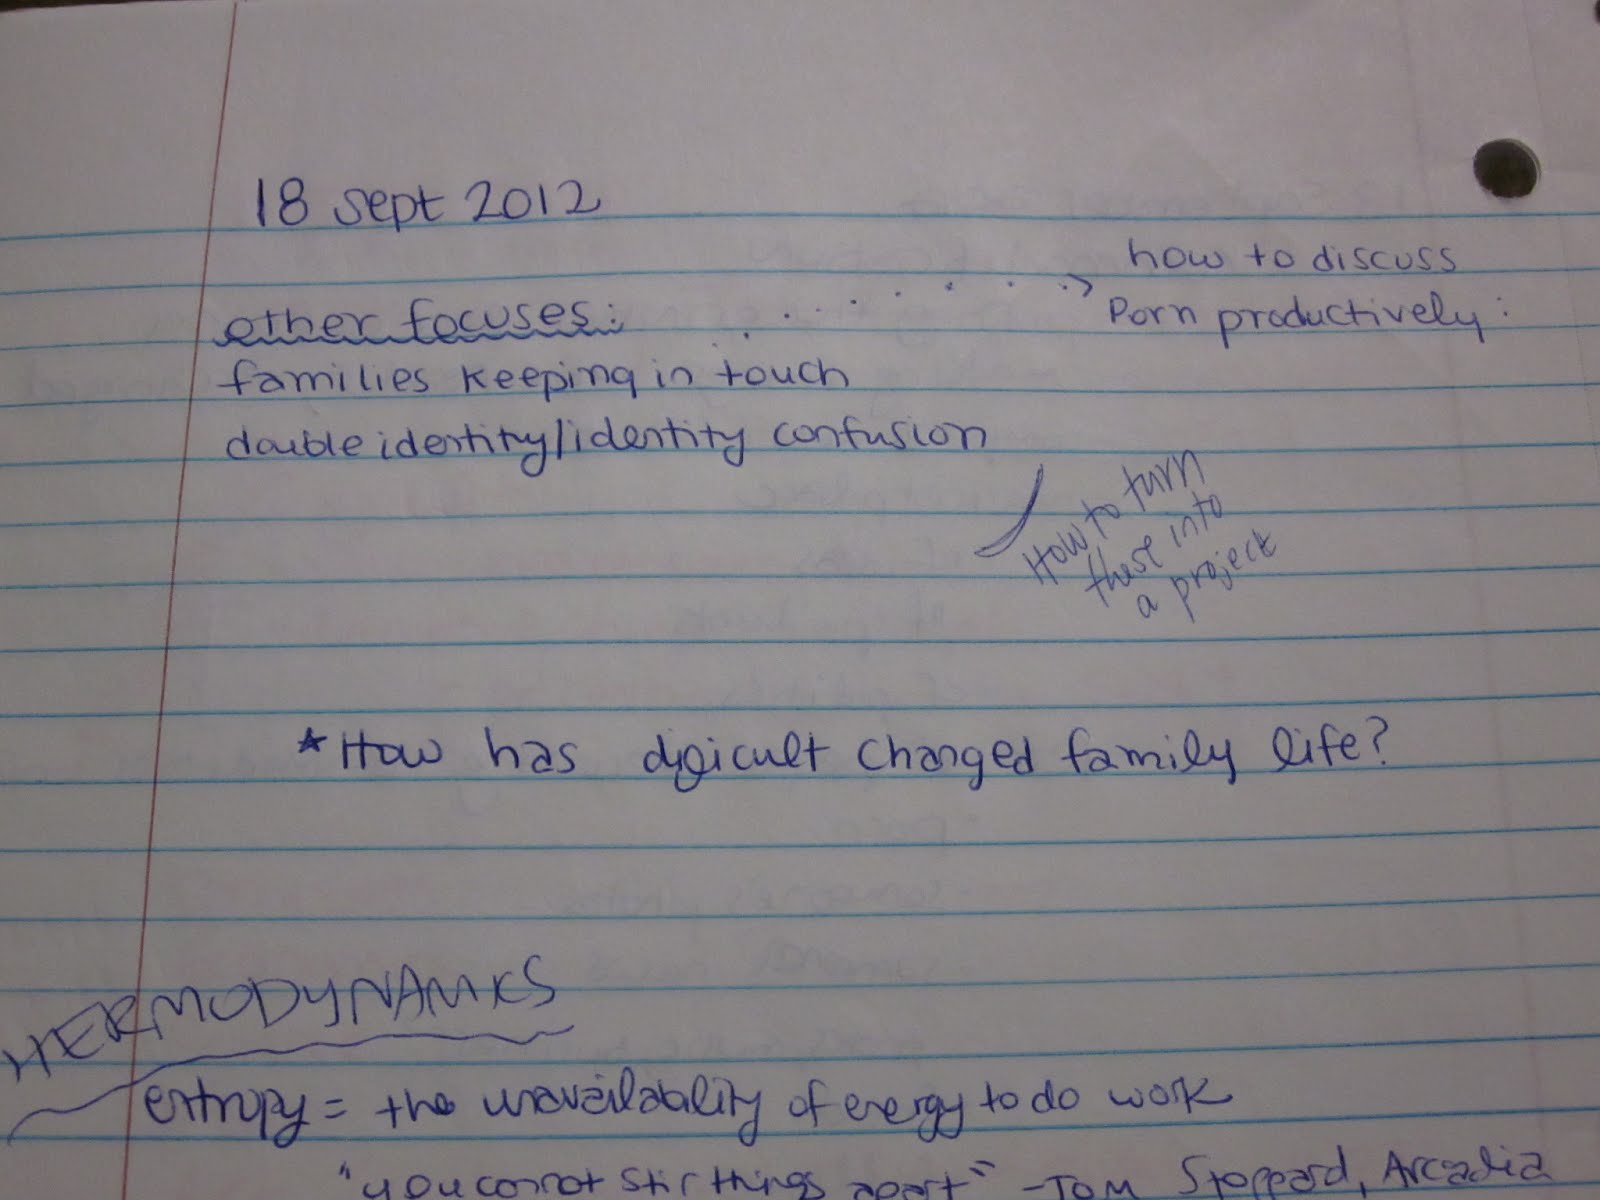 18 sept 2012
how to discuss
Porn productively:
other focuses:
families keeping in touch
double identity/identity confusion
How to turn
these into
a project
*How has digicult changed family life?
HERMODYNAMICS
entropy = the unavailability of energy to do work
"you cannot stir things apart" - Tom Stoppard, Arcadia